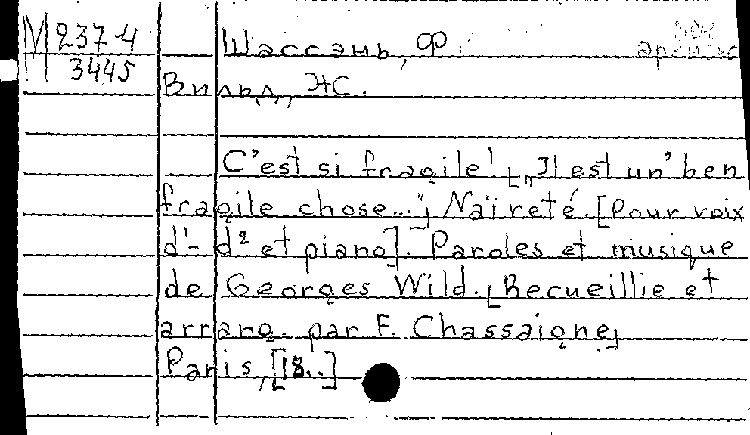 М 237-4
3445
Шассань, Ф.
Вильд, Ж.
C'est si fragile! ["Il est un' ben
fragile chose..."] Naïreté. [Pour voix
d¹- d² et piano]. Paroles et musique
de Georges Wild. [Recueillie et
arrang. par F. Chassaigne]
Paris, [18..]